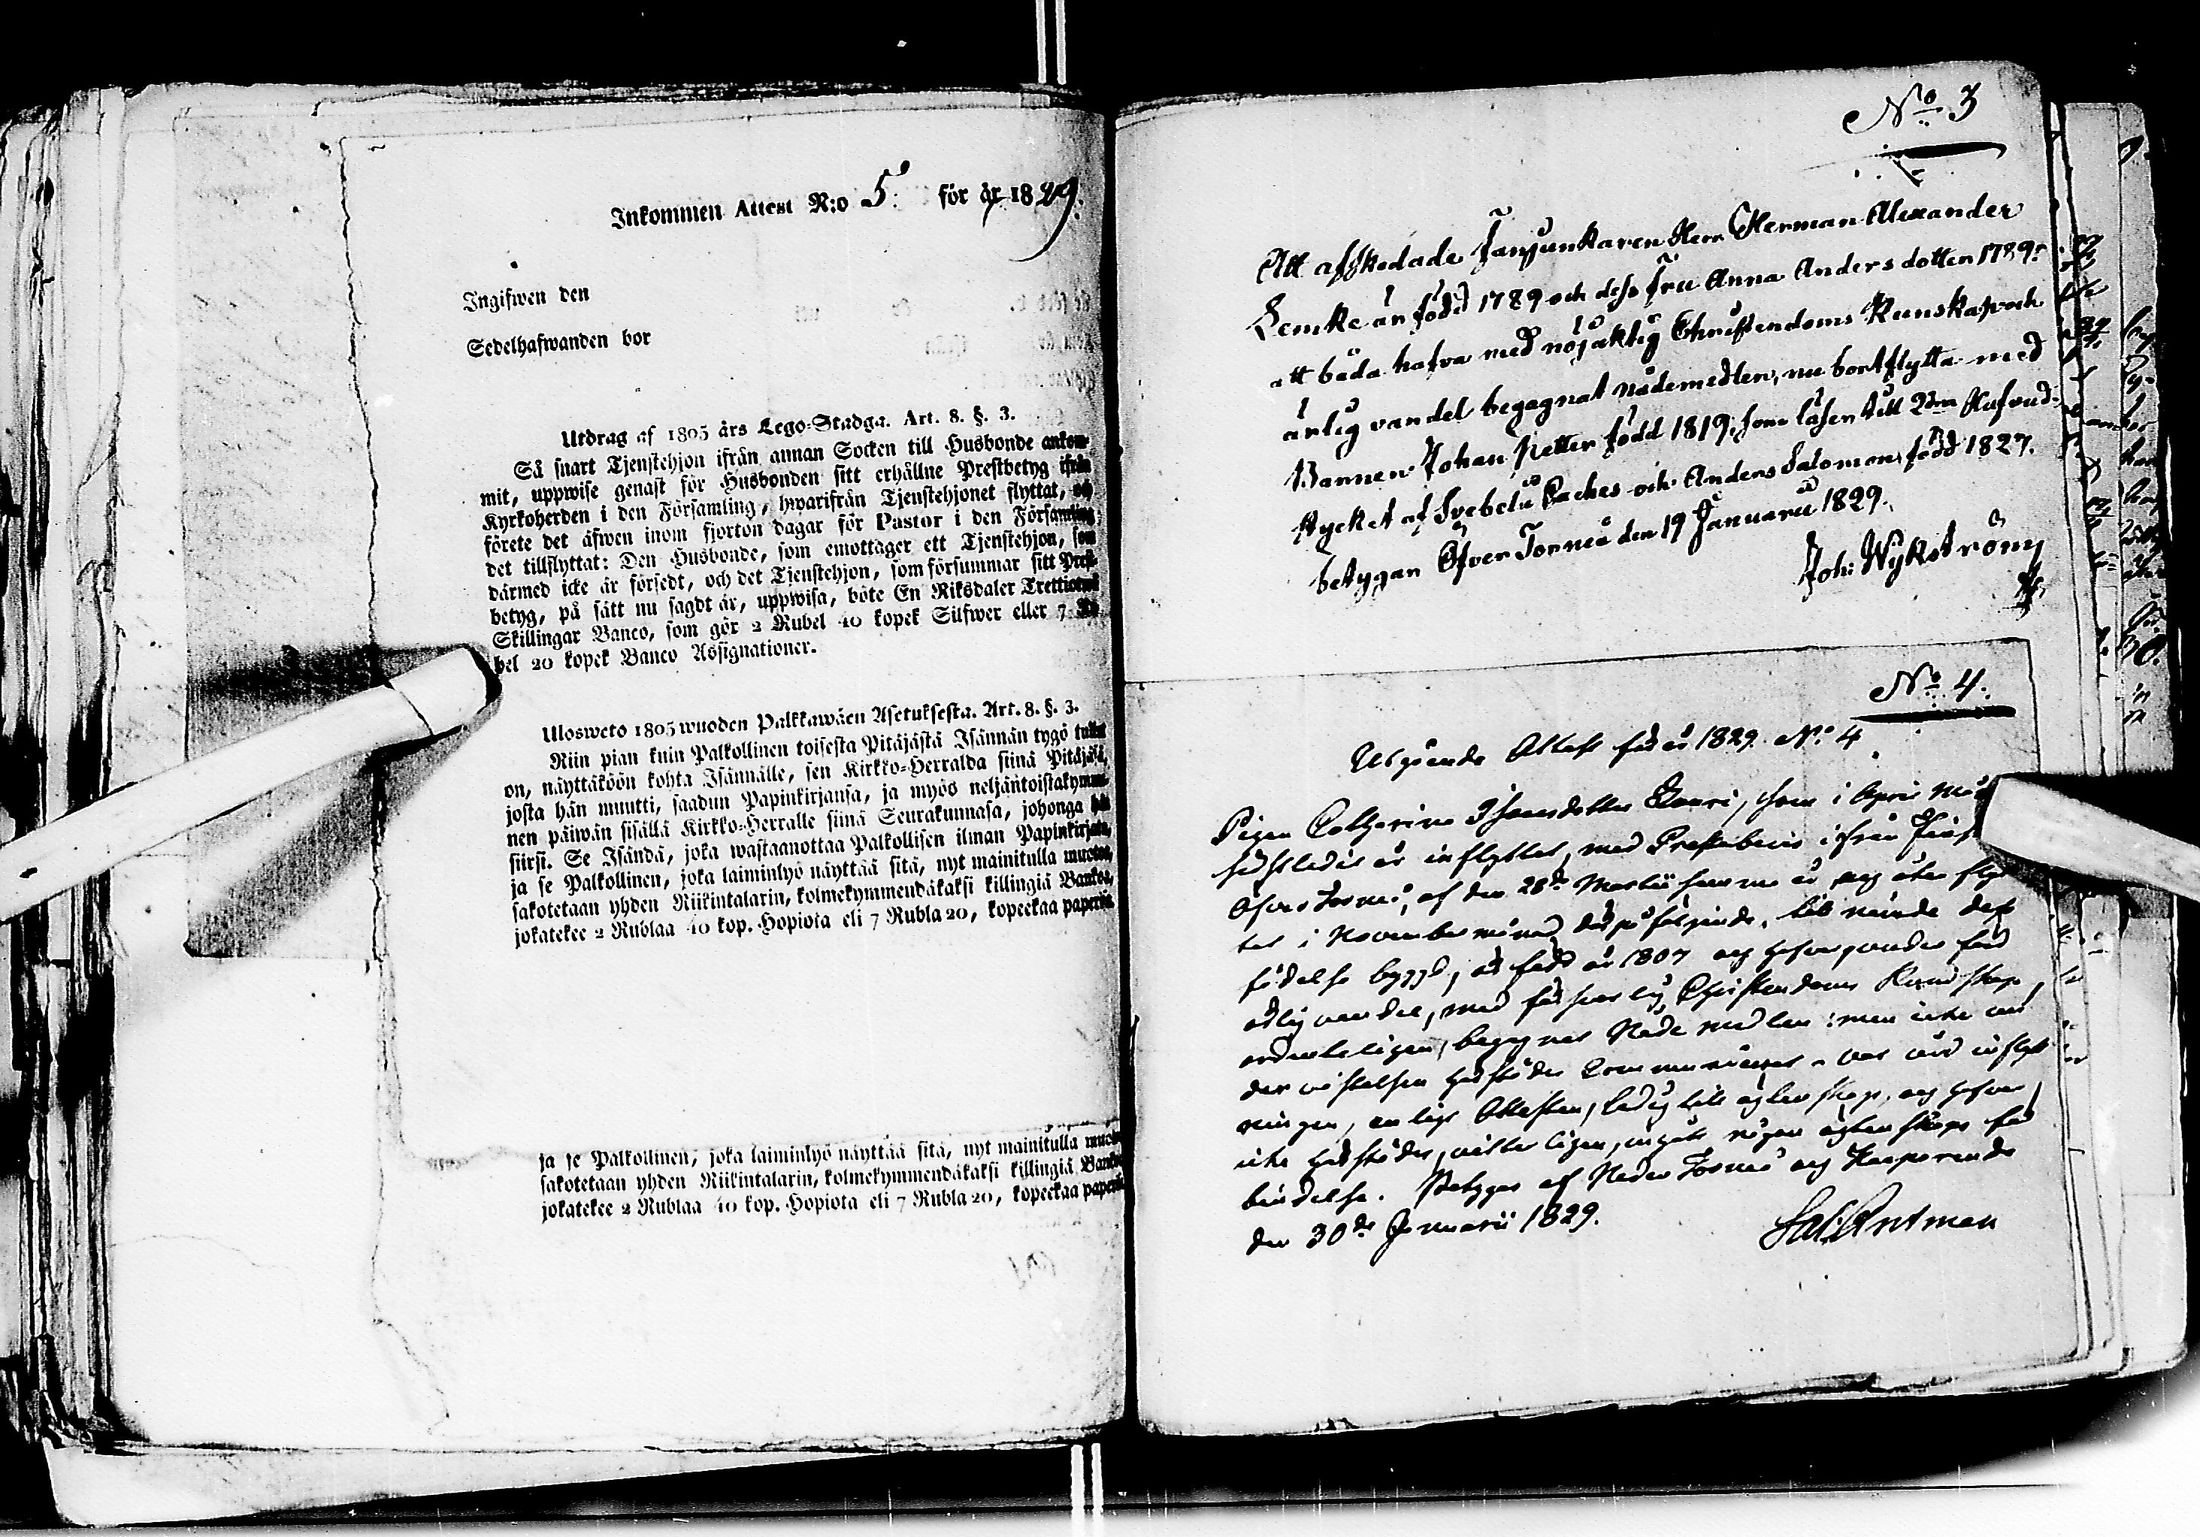 Inkommen Attest N:o 5. för år 1829.
Ingifwen den
Sedelhafwanden bor
Utdrag af 1805 års Lego-Stadga. Art. 8. §. 3.
Så snart Tjenstehjon ifrån annan Socken till Husbonde ankom-
mit, uppwise genast för Husbonden sitt erhållne Prestbetyg ifrån
Kyrkoherden i den Församling, hwarifrån Tjenstehjonet flyttat, och
förete det äfwen inom fjorton dagar för Pastor i den Församling,
det tillflyttat: Den Husbonde, som emottager ett Tjenstehjon, som
därmed icke är försedt, och det Tjenstehjon, som försummar sitt Prest-
betyg, på sätt nu sagdt är, uppwisa, böte En Riksdaler Trettiotwå
Skillingar Banco, som gör 2 Rubel 40 kopek Silfwer eller 7 Ru-
bel 20 kopek Banco Assignationer.
Ulosweto 1805 wuoden Palkkawäen Asetuksesta. Art. 8. §. 3.
Niin pian kuin Palkollinen toisesta Pitäjästä Isännän tygö tullut
on, näyttäköön kohta Isännälle, sen Kirkko-Herralda siinä Pitäjäsä,
josta hän muutti, saadun Papinkirjansa, ja myös neljäntoistakymme-
nen päiwän sisällä Kirkko-Herralle siinä Seurakunnasa, johonga hän
siirsi. Se Isändä, joka wastaanottaa Palkollisen ilman Papinkirjata,
ja se Palkollinen, joka laiminlyö näyttää sitä, nyt mainitulla muotoa,
sakotetaan yhden Riikintalarin, kolmekymmendäkaksi killingiä Bankoa,
jokatekee 2 Rublaa 40 kop. Hopiota eli 7 Rubla 20, kopeekaa paperia.
ja se Palkollinen, joka laiminlyö näyttää sitä, nyt mainitulla muoto
sakotetaan yhden Riikintalarin, kolmekymmendäkaksi killingiä Banko
jokatekee 2 Rublaa 40 kop. Hopiota eli 7 Rubla 20, kopeekaa paperia
No 3
Att afskedade Fanjunkaren Herr Herman Alexander
Lemke är född 1789 och dess Fru Anna Anders dotter 1789:
att båda hafva med nöjaktig Christendoms Kunskap och
ärlig vandel begagnat nådemedlen, nu bortflytta med
Barnen Johan Petter född 1819, som läser till 2dra Hufvud-
stycket af Svebelii Caches och Anders Salomon, född 1827.
betygar Öfver Torneå den 19 Januarii 1829.
Joh: Wykström
No 4.
Utgående Attest för år 1829. No 4
Pigan Catharina dotter som i April
sidstledit år inflyttat, med Prestbevis ifrån
Öfver Torneå, af den 28de Martii samma år, och åter flyt-
tat i November månad derpå följande, till
födelse bygd, är född år 1807 och för
ärlig vandel, med försvarlig Christendoms Kundskap,
ordenteligen, begagnat Nåde medlen: men icke un-
der vistelsen härstädes - var vid inflytt-
ningen, enligt Attesten, ledig till ägtenskap, och
icke härstädes, vitterligen, ingått någon ägtenskaps för-
bindelse. Betygas af Neder Torneå och Karperendr
den 30de Januarii 1829.
Sal. Antman